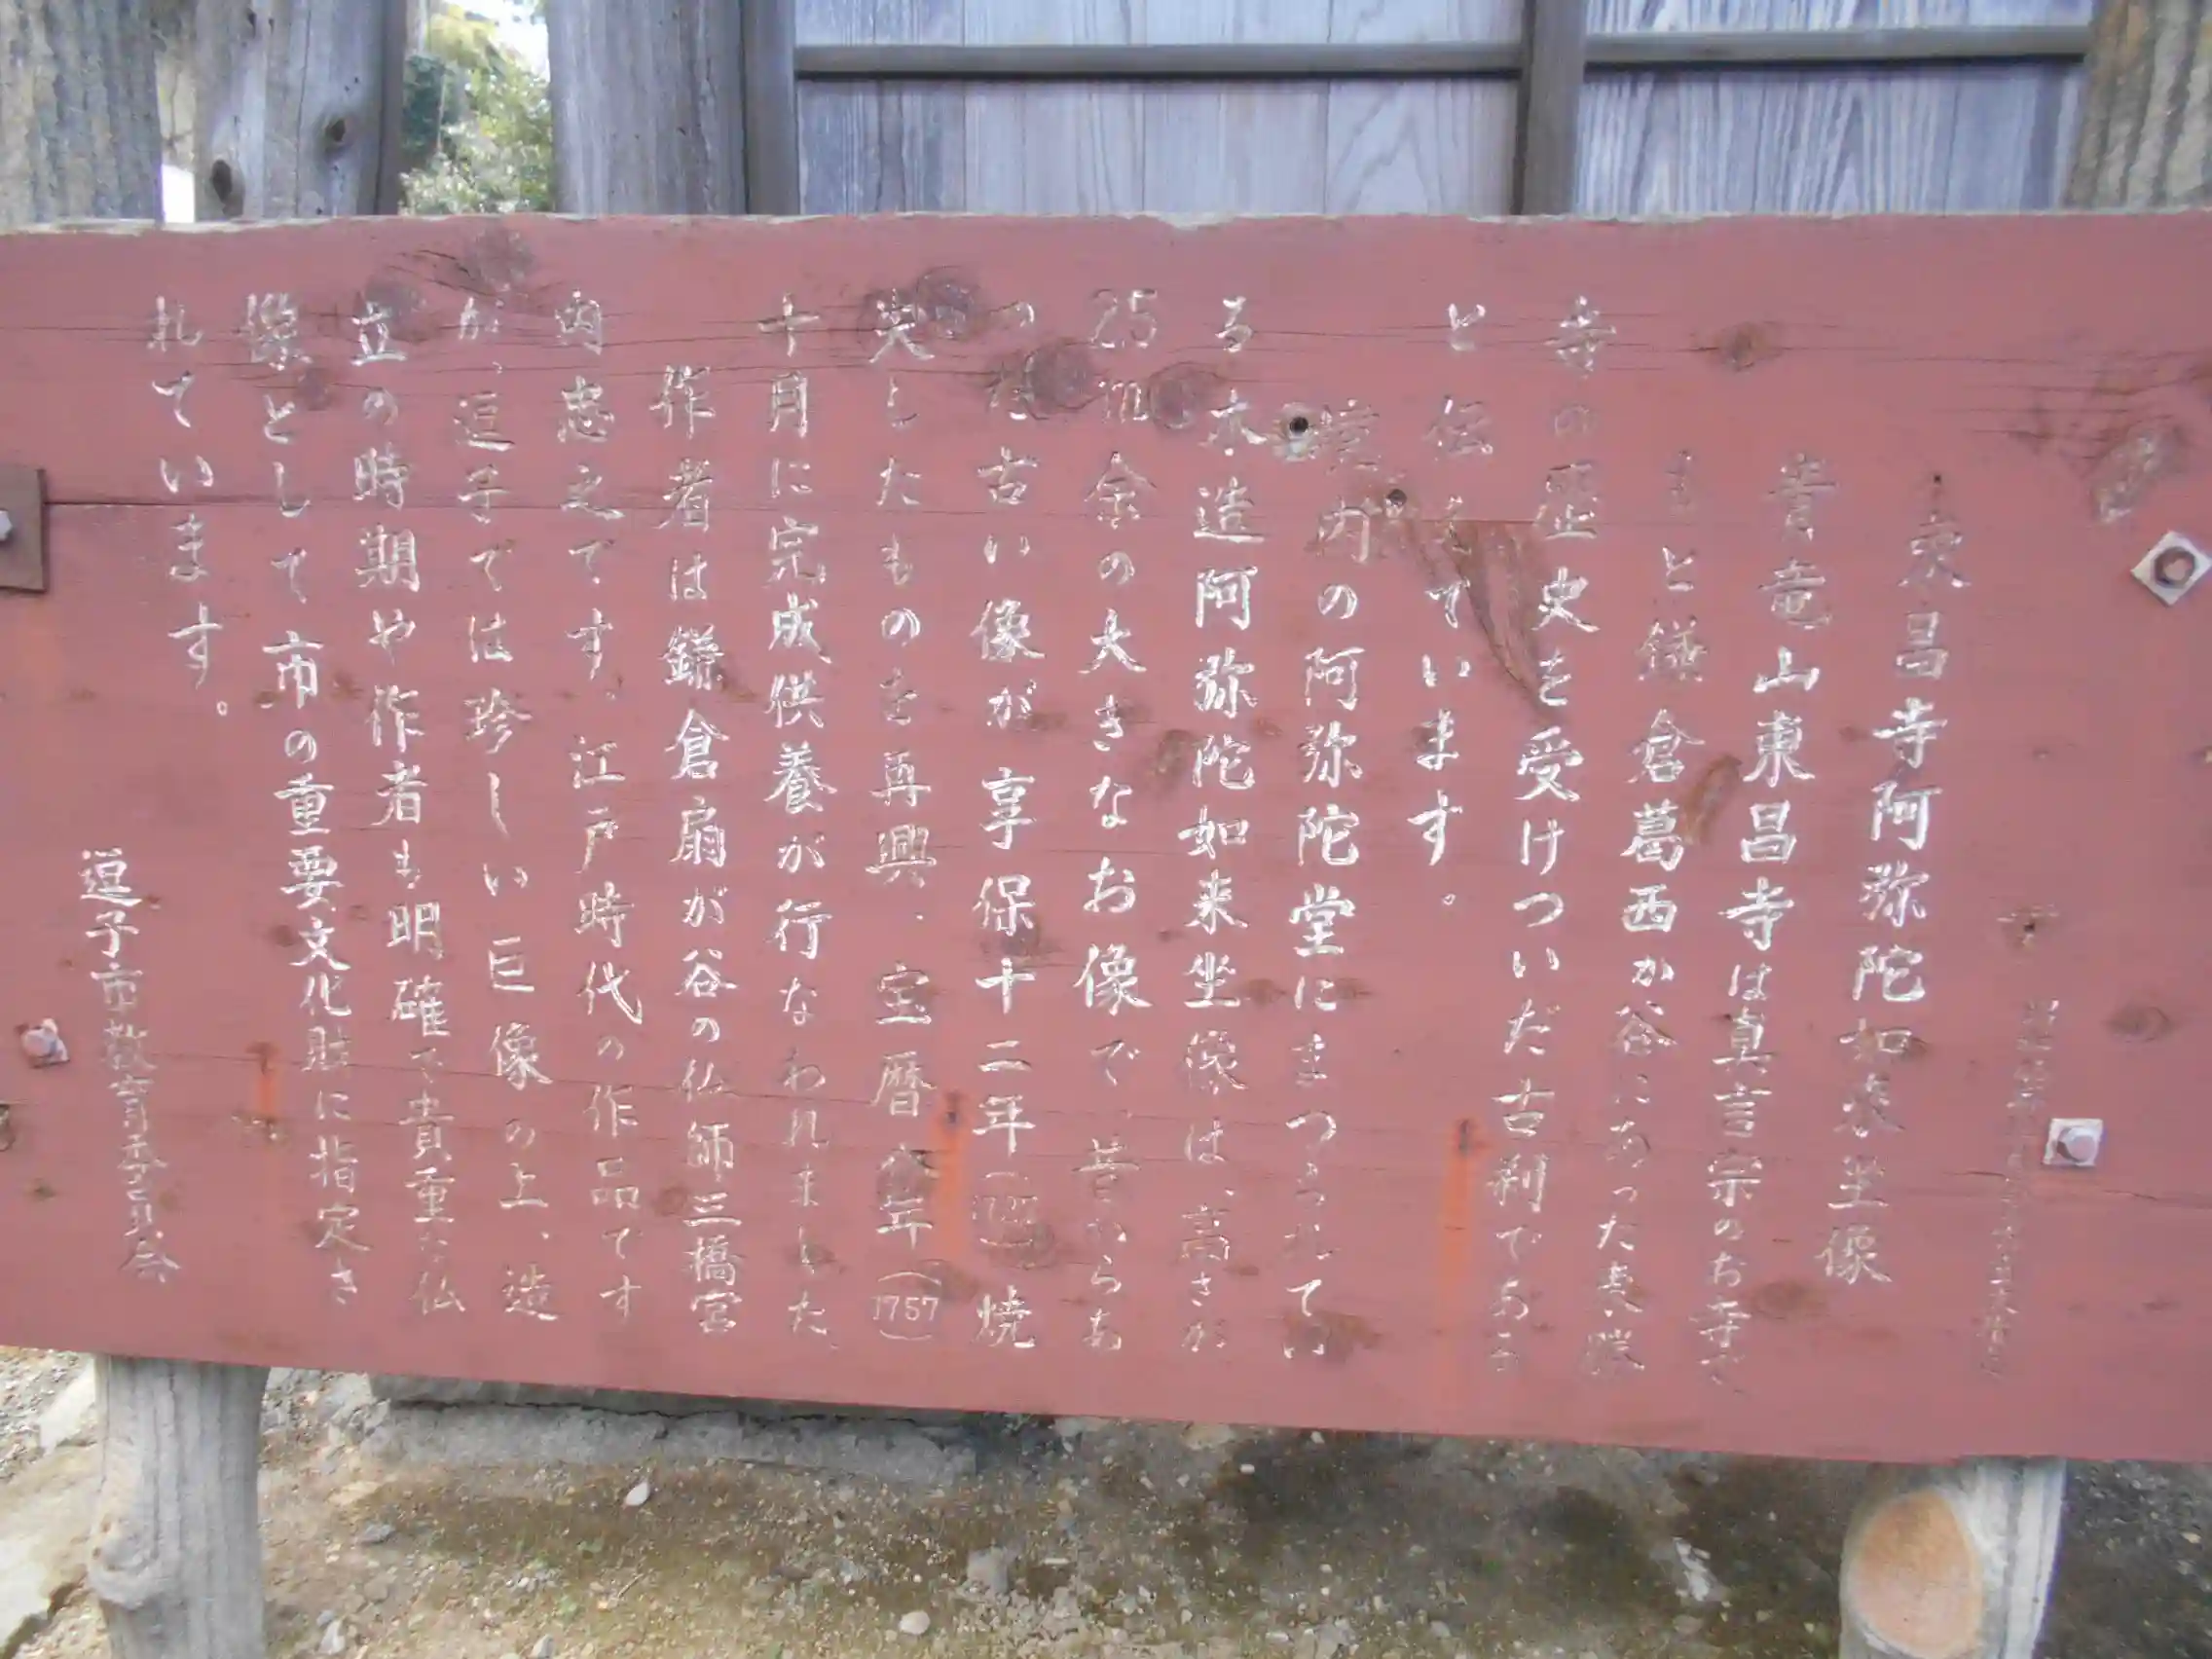 東昌寺阿弥陀如来坐像
青竜山東昌寺は真言宗のお寺で
もと鎌倉葛西か谷にあった東勝
寺の歴史を受けついだ古刹である
と伝えています。
境内の阿弥陀堂にまつられてい
る木造阿弥陀如来坐像は、高さが
2.5m余の大きなお像で、昔からあ
った古い像が享保十二年(1727)焼
失したものを再興、宝暦七年(1757)
十月に完成供養が行なわれました。
作者は鎌倉扇が谷の仏師三橋宮
内忠之です。江戸時代の作品です
が、逗子では珍しい巨像の上、造
立の時期や作者も明確で貴重な仏
像として市の重要文化財に指定さ
れています。
逗子市教育委員会